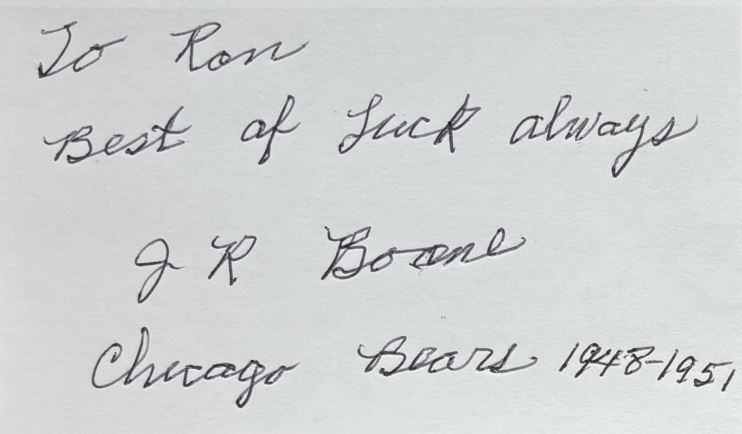 To Ron
Best of Luck always
J R Boone
Chicago Bears 1948-1951